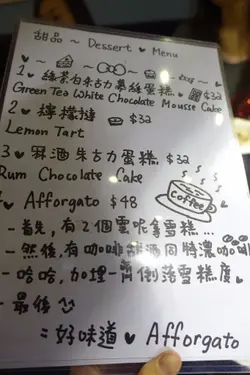 甜品 ~ Dessert ♥ Menu
1♥ 綠茶白朱古力慕絲蛋糕 $32
Green Tea White Chocolate Mousse Cake
2♥ 檸檬撻 $32
Lemon Tart
3♥ 冧酒朱古力蛋糕 $32
Rum Chocolate Cake
Afforgato $48
Coffee
- 首先,有2個雲呢拿雪糕...
- 然後,有咖啡酒同特濃咖啡
- 哈哈,加埋一齊倒落雪糕度
- 最後
= 好味道 ♥ Afforgato